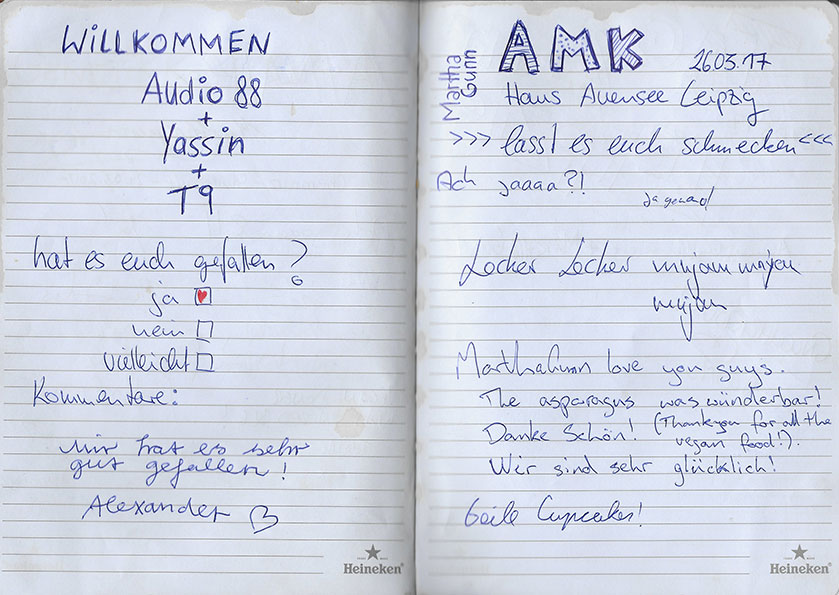 WILLKOMMEN
Audio 88
+
Yassin
+
T9
hat es euch gefallen?
ja
nein
vielleicht
Kommentare:
Mir hat es sehr
gut gefallen!
Alexander
Heineken®
Martha
Gunn
AMK
26.03.17
Haus Auensee Leipzig
>>> lasst es euch schmecken <<<
Ach jaaaa?!
Ja genau!
Locker Locker mnjam mnjam
mnjam
MarthaGunn love you guys.
The asparagus was wünderbar!
Danke Schön! (Thankyou for all the
vegan food!).
Wir sind sehr glücklich!
Geile Cupcakes!
Heineken®